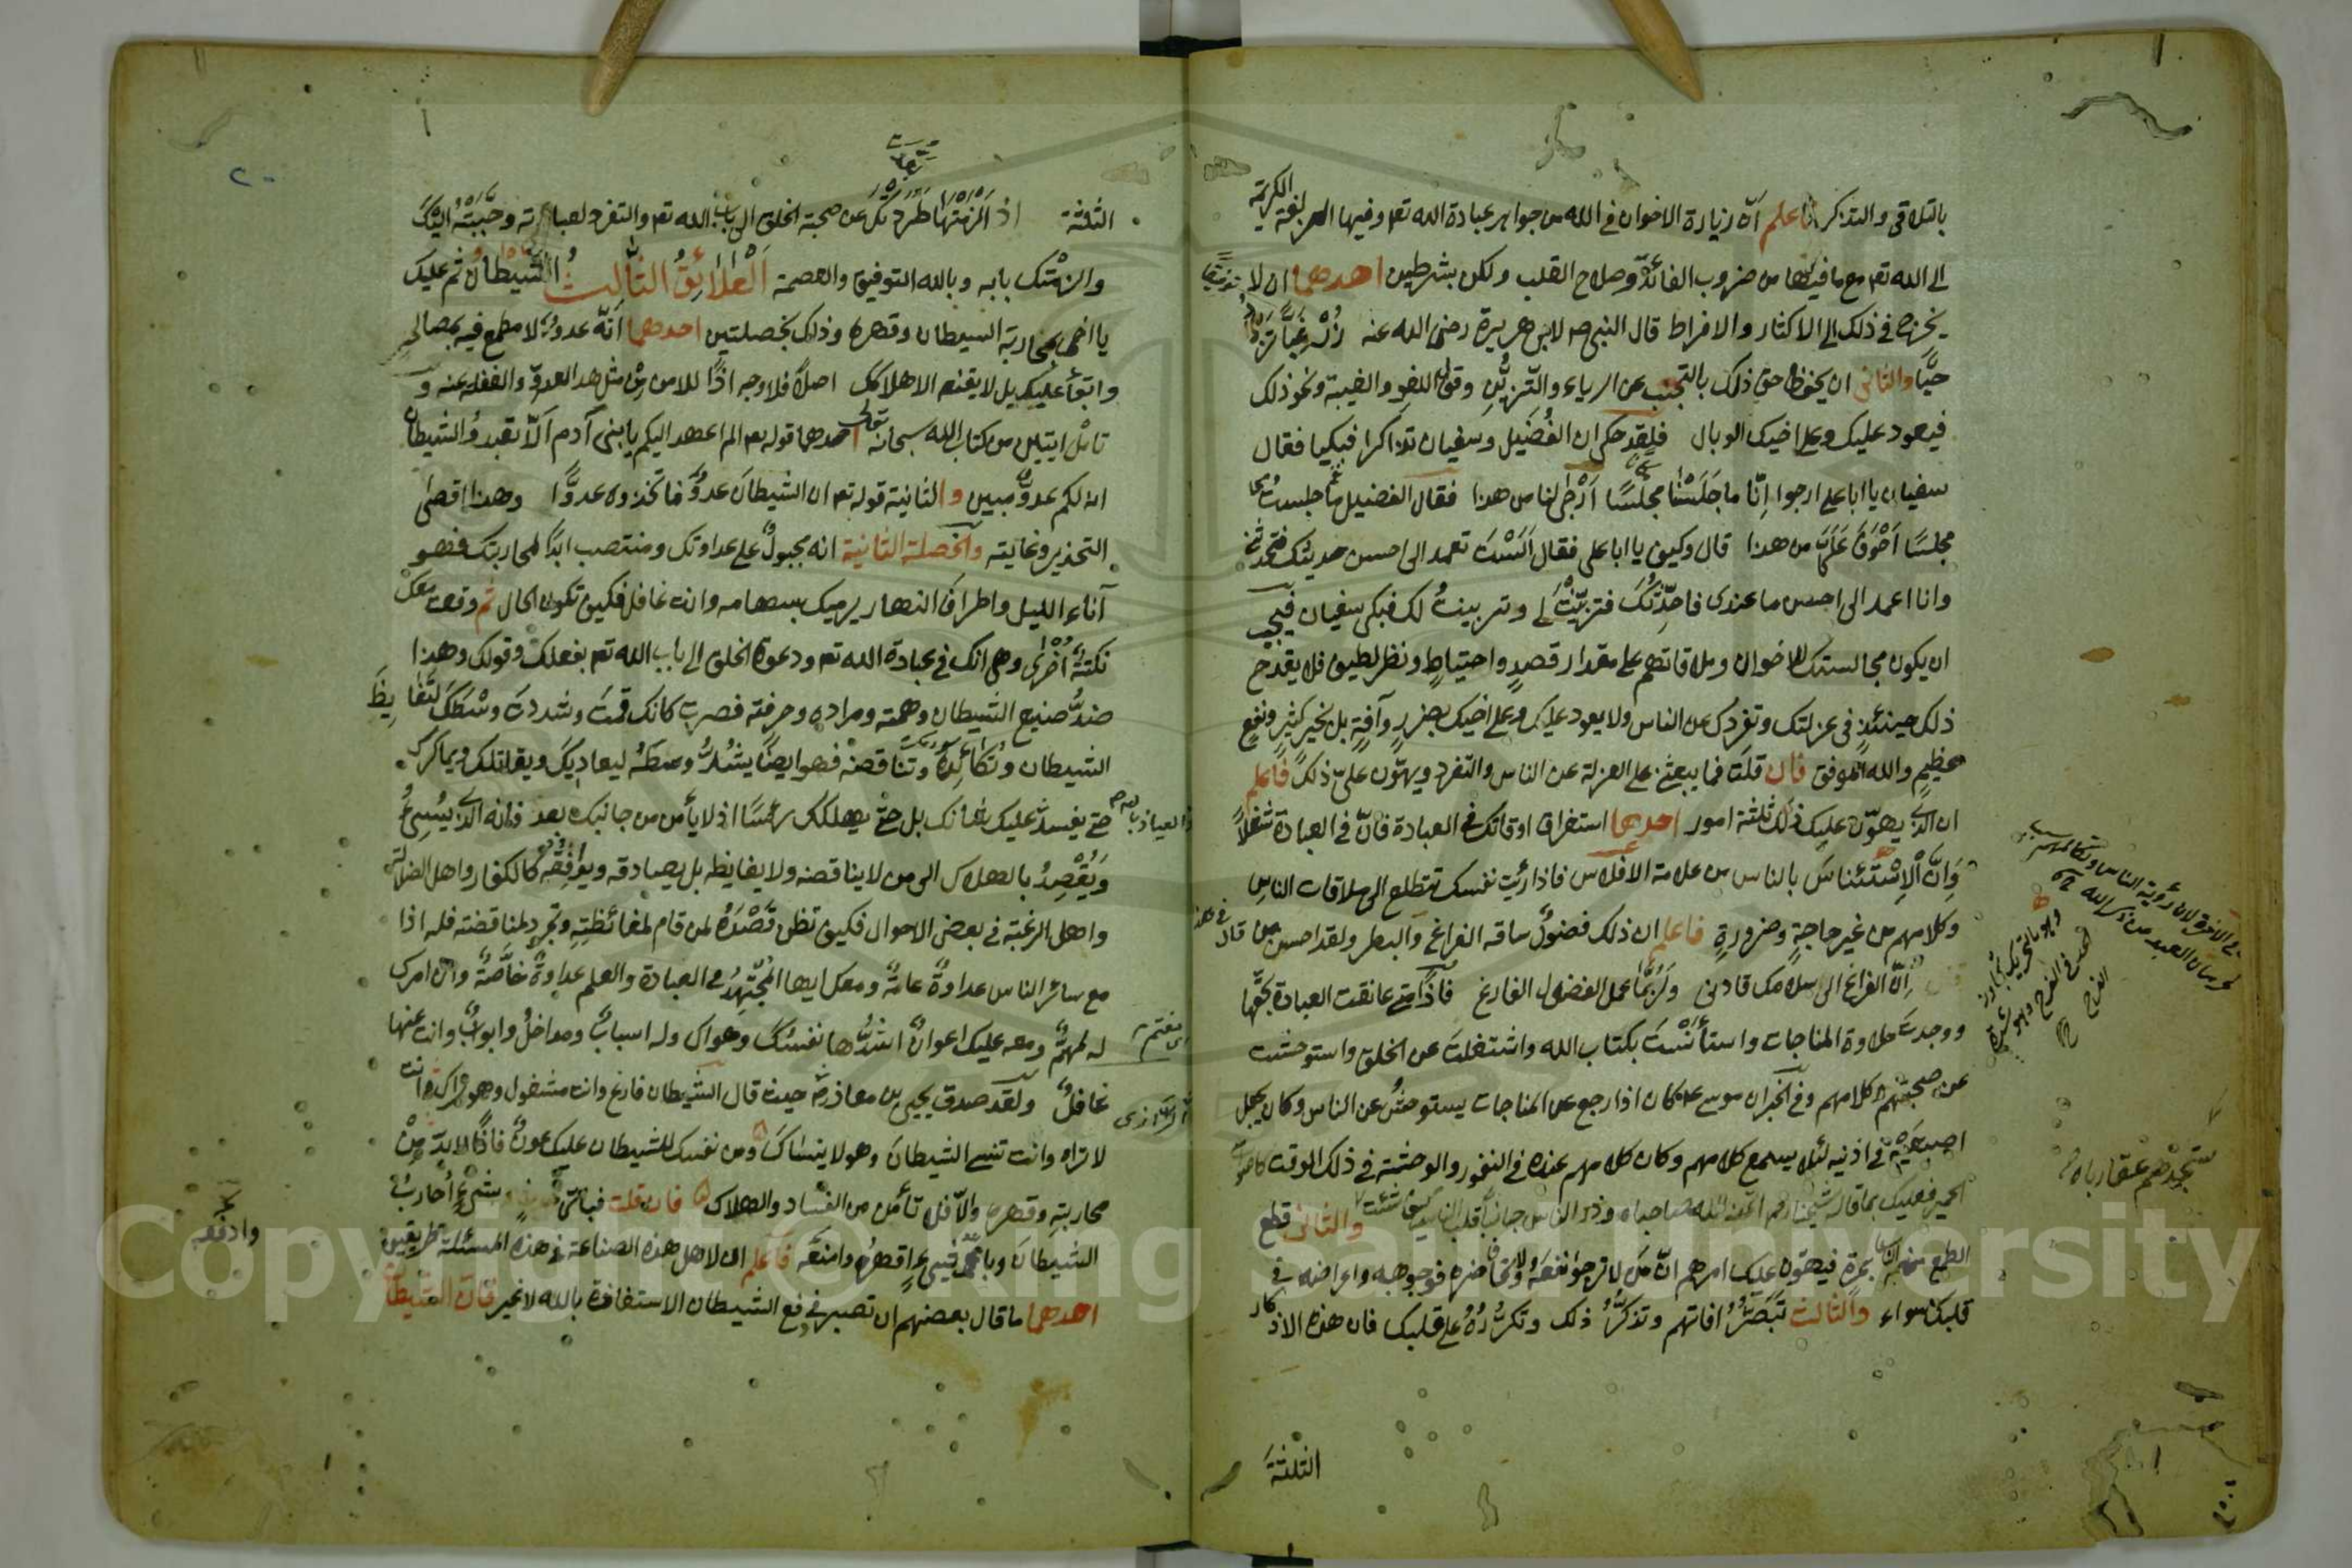 بالتلاقى والتذاكر فاعلم ان زيارة الاخوان في الله من جواهر عبادة الله تعم وفيها الزلفة الكريمة
الى الله تعم مع ما فيها من ضروب الفائدة وصلاح القلب ولكن بشرطين احدهما ان لا
يخرج في ذلك الى الاكثار والافراط قال النبي صم لابي هريرة رضى الله عنه زُرْ غِبًّا تَزْدَدْ
حبًّا والثانى ان يحفظ حق ذلك بالتجنب عن الرياء والتزيّن وقول اللغو والغيبة ونحو ذلك
فيعود عليك وعلى اخيك الوبال فلقد حكى ان الفُضَيل وسفيان تذاكرا فبكيا فقال
سفيان يا ابا على ارجوا انّا ما جَلَسْنا مجلسًا اَرْجٰى لنا من هذا فقال الفضيل ما جلست
مجلسًا اَخْوَفَ عَلَىَّ من هذا قال وكيف يا ابا على فقال اَلَسْتَ تعمد الى احسن حديثك فتحدثنى
وانا اعمد الى احسن ما عندى فاحدّثك فتزيّنْتَ لى وتزينتُ لك فبكى سفيان فيجب
ان يكون مجالستك للاخوان وملاقاتهم على مقدار قصدٍ واحتياطٍ ونظر لطيف فلا يقدح
ذلك حينئذٍ في عزلتك وتفردك عن الناس ولا يعود عليك وعلى اخيك بضررٍ وآفةٍ بل بخير كثيرٍ ونفعٍ
عظيمٍ والله الموفق فان قلت فما يبعث على العزلة عن الناس والتفرد ويهوّن علىّ ذلك فاعلم
ان الذى يهوّن عليك ذلك ثلثة امور احدها استغراق اوقاتك في العبادة فانّ في العبادة شغلاً
وَاِنَّ الْاِسْتئناسَ بالناس من علامة الافلاس فاذا رئيت نفسك تتطلع الى ملاقات الناسِ
وكلامهم من غير حاجةٍ وضرورةٍ فاعلم ان ذلك فضولٌ ساقه الفراغ والبطر ولقد احسن من قال في هذا
اِنّ الفراغ الى سلامك قادنى ولَرُبَّما عمل الفضول الفارغ فاذًا متى عانقت العبادة بحقّها
ووجدت حلاوة المناجات واستأنَسْتَ بكتاب الله واشتغلتَ عن الخلق واستوحشت
عن صحبتهم وكلامهم وفي الخبر ان موسى عم كان اذا رجع عن المناجات يستوحش عن الناس وكان يجعل
اصبعيه في اذنيه لئلا يسمع كلامهم وكان كلامهم عنده في النفور والوحشة في ذلك الوقت كاصوات
الحمير فعليك بما قاله شيخنا رحم اتخذ الله صاحباه وذر الناس جانباً قلب الناس كيف شئت والثانى قطع
الطمع منهم بمرة فيهوّن عليك امرهم انّ مَن لا ترجوا نفعَهُ ولا تخاف ضره فوجوهه واعراضه فى
قلبك سواء والثالث تبصّرُ افاتهم وتذكّرُ ذلك وتكرّرُهُ على قلبك فان هذه الاذكار
الثلثة
ستجدهم عقارباه
الثلثة اذ اَلزمْتَها طَرَدَتْك عن صحبة الخلق الى باب الله تعم والتفرد لعبادته وحَبَّبَتْهُ اليْكَ
والزمتك بابه وبالله التوفيق والعصمة اَلْعَلائِقُ الثّالثُ الشّيطانُ ثم عليك
يا اخى بمحاربة الشيطان وقهره وذلك بخصلتين احدهما انّه عدوّ لا مطمع فيه بمصالح
وابقاءٍ عليك بل لا يقنعه الا هلاكك اصلاً فلا وجه اذًا للامن مِن مثل هذا العدوّ والغفلة عنه و
تامّل ايتين من كتاب الله سبحانه تعالى احدهما قوله تعم الم اعهد اليكم يا بنى آدم اَلاّ تعبدوا الشيطان
انه لكم عدوٌّ مبين والثانية قوله تعم ان الشيطانَ عدوٌّ فاتخذوه عدوًّا وهذا اقصٰى
التحذير وغايته والخصلة الثانية انه مجبولٌ على عداوتك ومنتصب ابدًا لمحاربتك فهو
آناء الليل واطرافَ النهار يرميك بسهامه وانت غافل فكيف تكون الحال ثم وقعت معك
نكتة اُخْرٰى وهى انك في عبادة الله تعم ودعوة الخلق الى باب الله تعم بفعلك وقولك وهذا
ضدُّ صنيع الشيطان وهمّته ومراده وحرفته فصرت كانك قمت وشددت وسْطَكَ لتُغايِظَ
الشيطان وتُكائدَه وتناقضه فهو ايضًا يشُدُّ وسطه ليعاديَك ويقاتلك ويماكرك
حتى يفسد عليك شانك بل حتى يهلكك رأسًا اذ لا يأمن من جانبك بعد فانه الذى يُسِئُ
وَيُقْصِدُ بالهلاك الى من لا يناقضه ولا يغايظه بل يصادقه ويوافقه كالكفار واهل الضلالة
واهل الرغبة في بعض الاحوال فكيف تظن قَصْدَهُ لمن قام لمغائظتِهِ وتجرد لمناقضته فله اذا
مع سائر الناس عداوةٌ عامةٌ ومعك ايها المُجْتَهِدُ في العبادة والعلم عداوةٌ خاصّةٌ وان امرك
له لمهمٌّ ومعه عليك اعوانٌ اشدُّها نفسُك وهواك وله اسبابٌ ومداخلُ وابوابٌ وانت عنها
غافلٌ ولقد صدق يحيى بن معاذ رحمه حيث قال الشيطان فارغ وانت مشغول وهو يراك وانت
لا تراه وانت تنسى الشيطانَ وهو لا ينساكَ ومن نفسك للشيطان عليك عونٌ فاذًا لا بد مِنْ
محاربتِهِ وقهره والاّ فلا تأمن من الفساد والهلاك فان قلت فباىّ شيْءٍ اُحاربُ
الشيطانَ وباىّ شيءٍ اقهرُه وامنعه فاعلم ان لاهل هذه الصناعة في هذه المسئلة طريقين
احدهما ما قال بعضهم ان تصبر في دفع الشيطان الاستغاذة بالله لا غير فان الشيطان
وادفعه
والعياذ بالله
Copyright © King Saud University